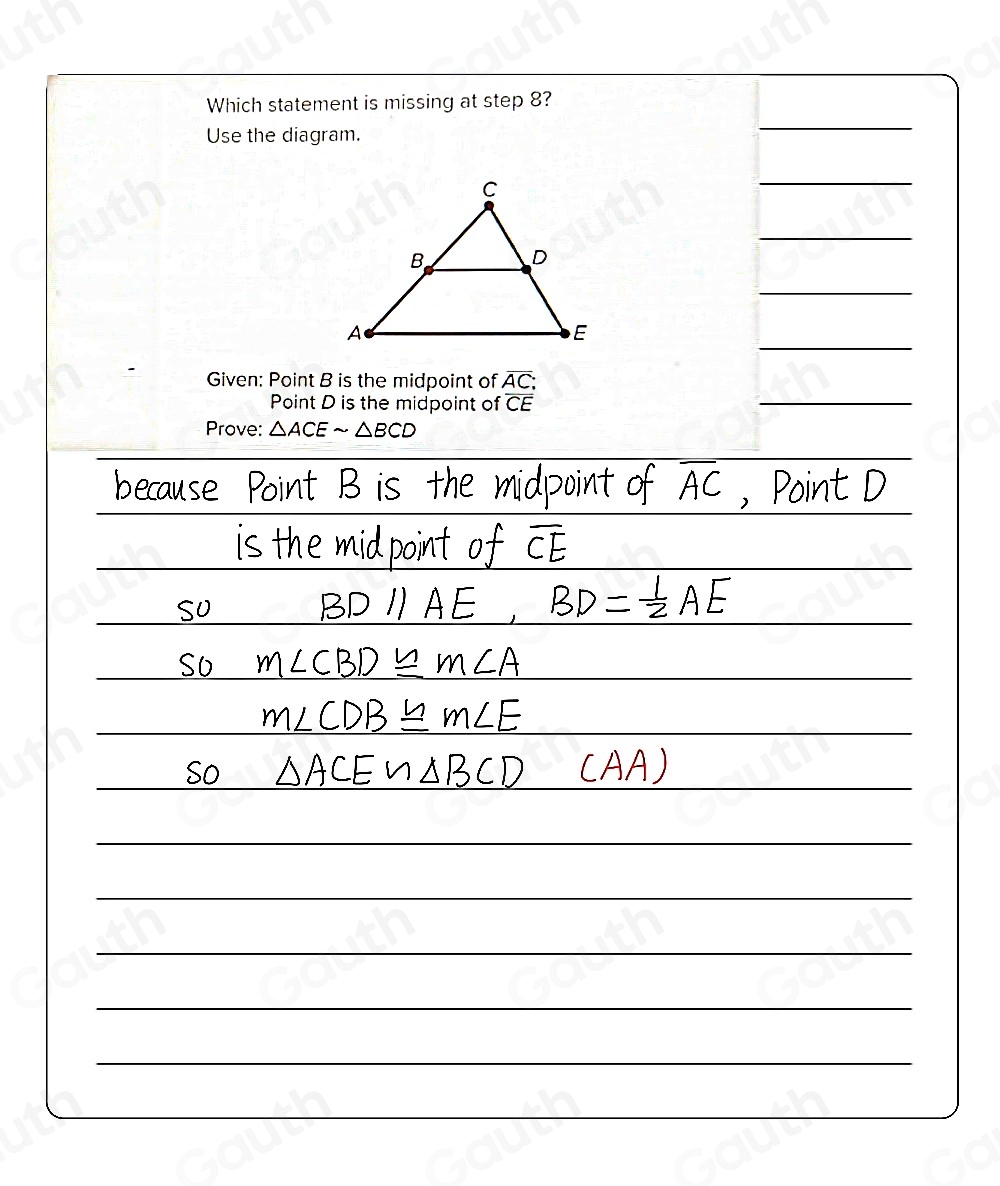 Which statement is missing at step 8?
Use the diagram.
C
B D
A E
Given: Point B is the midpoint of A̅C̅;
Point D is the midpoint of C̅E̅
Prove: △ACE ~ △BCD
because Point B is the midpoint of A̅C̅, Point D
is the midpoint of C̅E̅
so BD // AE , BD = 1/2 AE
so m∠CBD ≌ m∠A
m∠CDB ≌ m∠E
so △ACE ∽ △BCD (AA)
Gauth